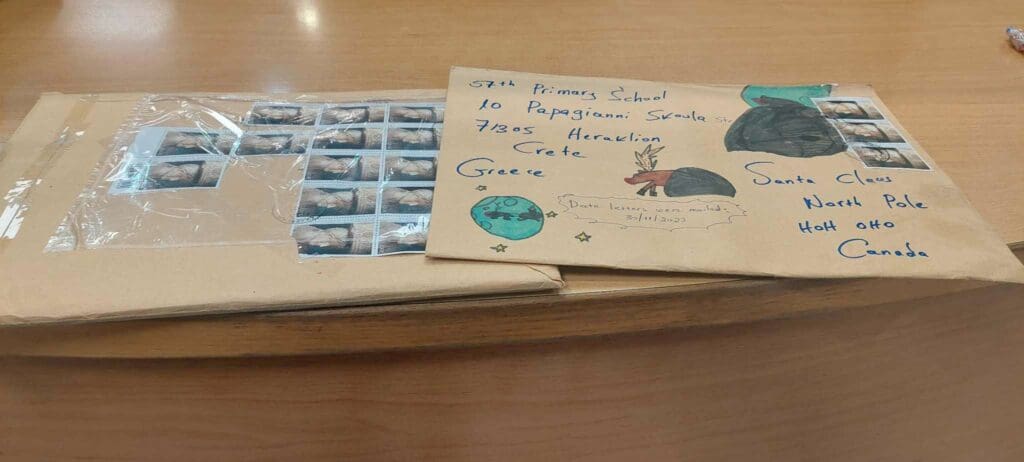 57th Primary School
10 Papagianni Skoula Str
71305 Heraklion
Crete
Greece
Date letters were mailed:
30/11/2023
Santa Claus
North Pole
HOH OHO
Canada